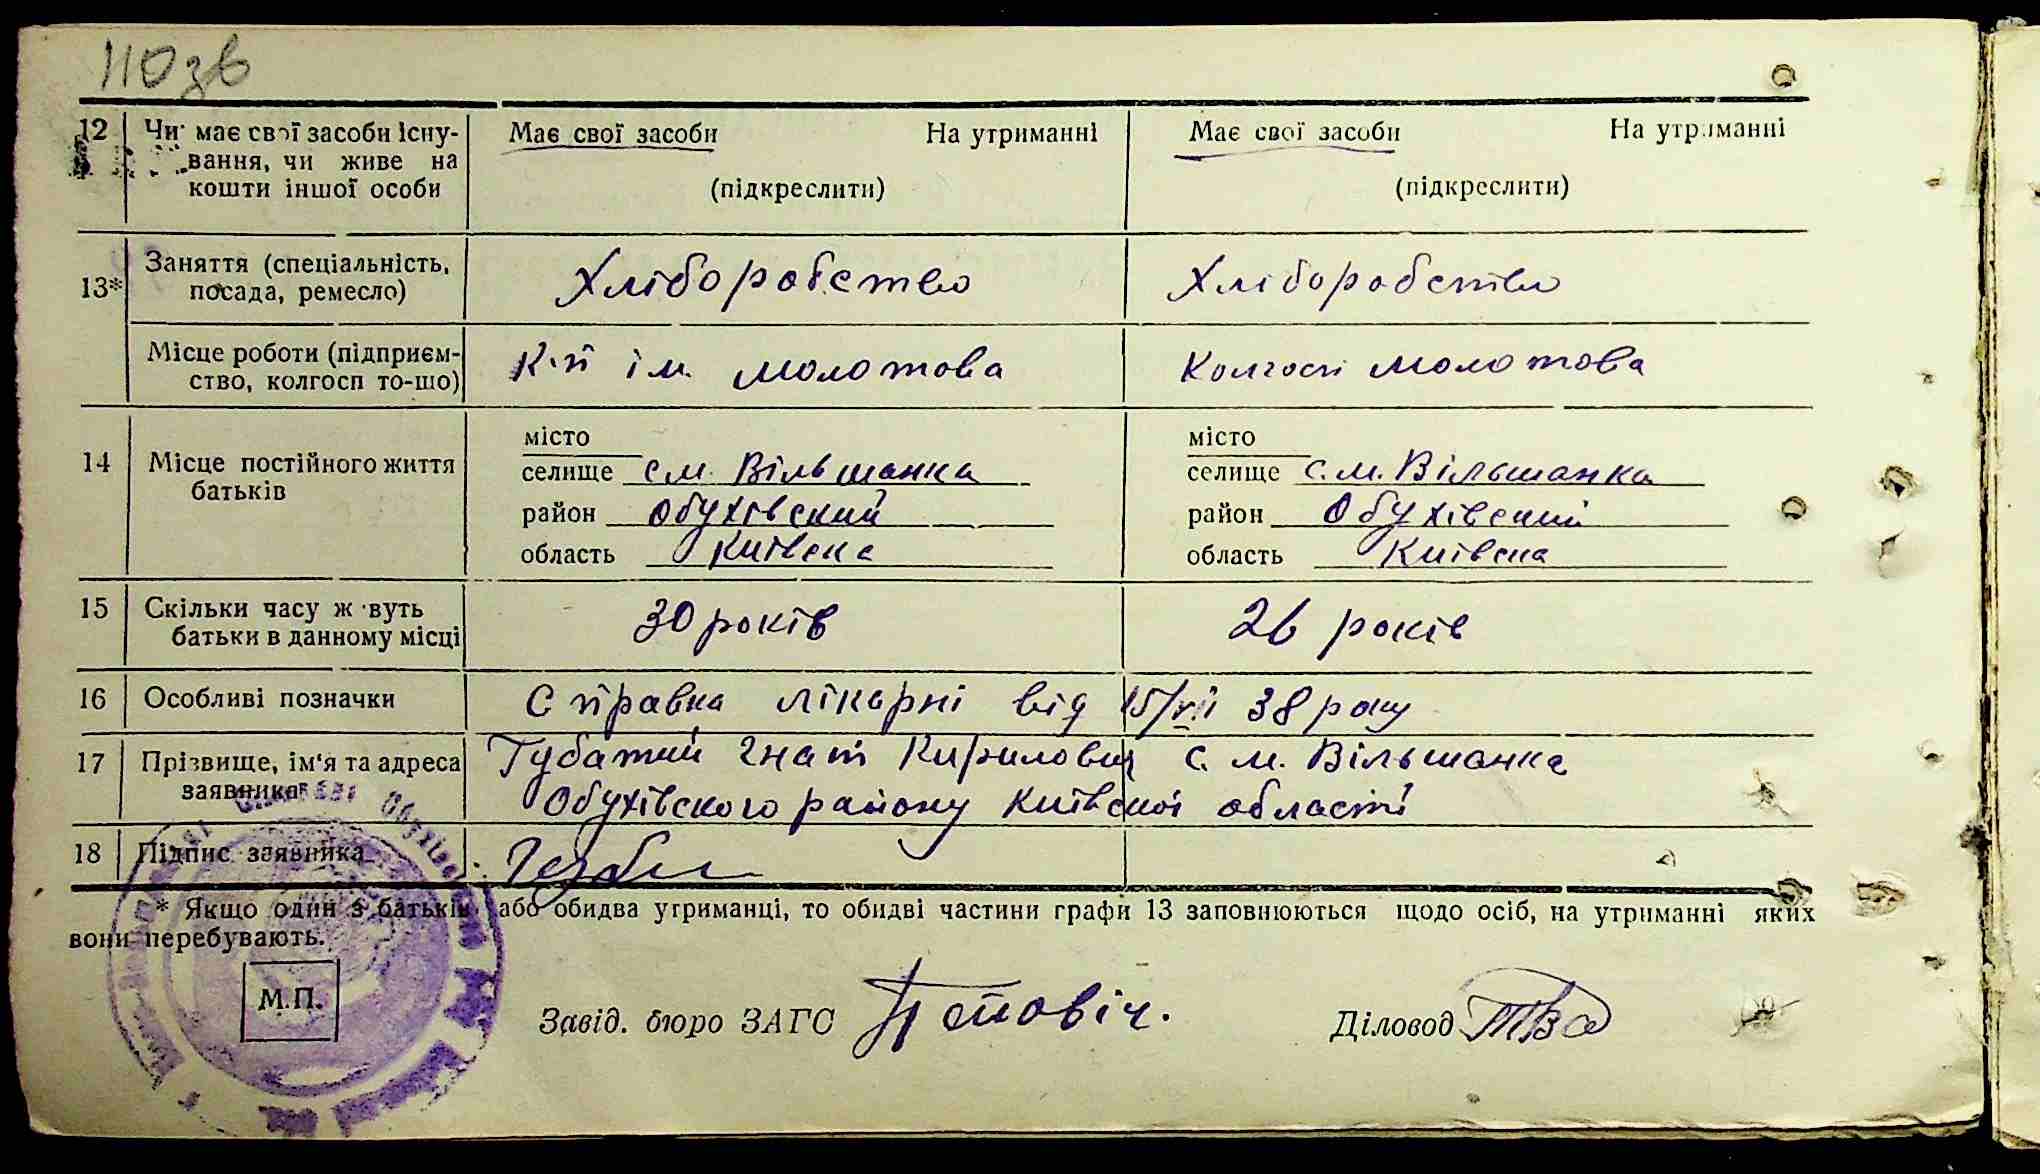 110 зв
12 Чи має свої засоби існу- Має свої засоби На утриманні Має свої засоби На утриманні
вання, чи живе на
кошти іншої особи (підкреслити) (підкреслити)
13* Заняття (спеціальність, посада, ремесло) Хліборобство Хліборобство
Місце роботи (підприєм- К-п ім. Молотова Колгосп Молотова
ство, колгосп то-що)
14 Місце постійного життя батьків
місто місто
селище с м. Вільшанка селище с. м. Вільшанка
район Обухівский район Обухівский
область Київска область Київска
15 Скільки часу живуть 30 років 26 років
батьки в данному місці
16 Особливі позначки Справка лікарні від 15/VII 38 року
17 Прізвище, ім'я та адреса Губатий Гнат Кирилович с. м. Вільшанка
заявника Обухівского району Київскої області
18 Підпис заявника
* Якщо один з батьків або обидва утриманці, то обидві частини графи 13 заповнюються щодо осіб, на утриманні яких
вони перебувають.
М.П.
Завід. бюро ЗАГС
Діловод